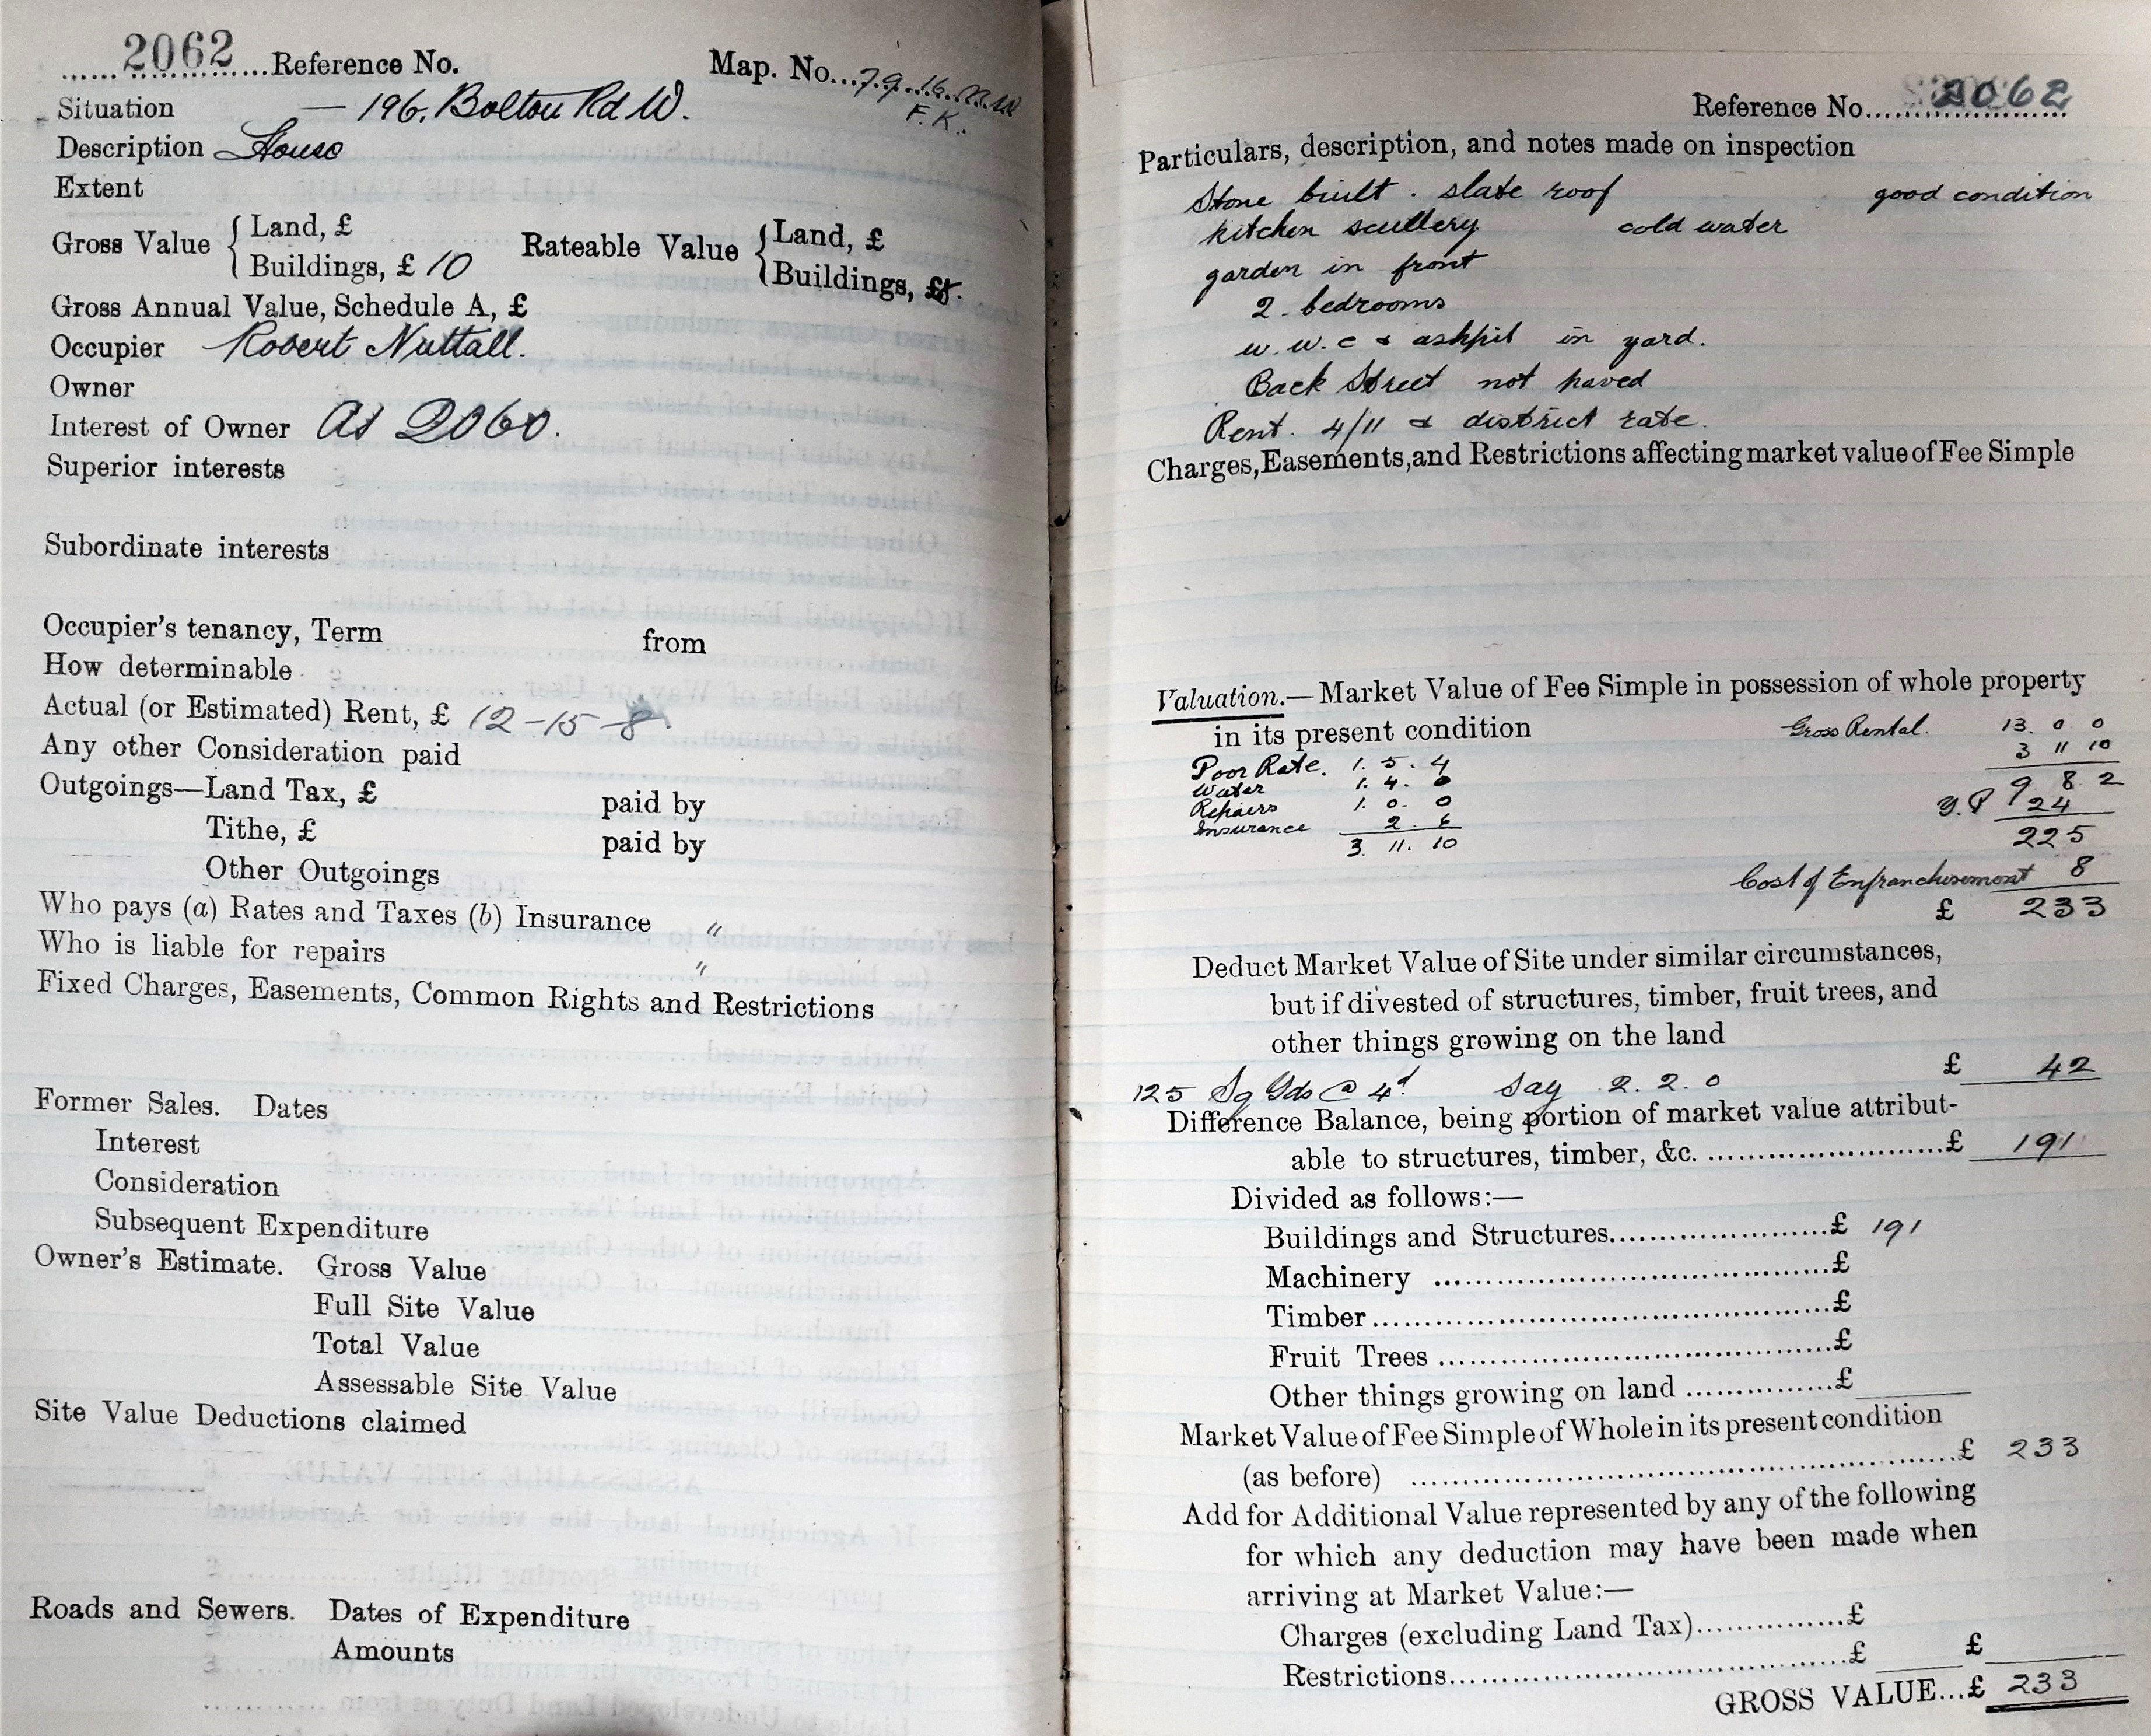 2062 Reference No. Map. No. 79.16.N.W
F.K.
Situation — 196, Bolton Rd W.
Description House
Extent
Gross Value { Land, £ Rateable Value { Land, £
Buildings, £ 10 Buildings, £8.
Gross Annual Value, Schedule A, £
Occupier Robert Nuttall.
Owner
Interest of Owner As 2060.
Superior interests
Subordinate interests
Occupier's tenancy, Term from
How determinable
Actual (or Estimated) Rent, £ 12-15-8
Any other Consideration paid
Outgoings—Land Tax, £ paid by
Tithe, £ paid by
Other Outgoings
Who pays (a) Rates and Taxes (b) Insurance "
Who is liable for repairs "
Fixed Charges, Easements, Common Rights and Restrictions
Former Sales. Dates
Interest
Consideration
Subsequent Expenditure
Owner's Estimate. Gross Value
Full Site Value
Total Value
Assessable Site Value
Site Value Deductions claimed
Roads and Sewers. Dates of Expenditure
Amounts
Reference No. 2062
Particulars, description, and notes made on inspection
Stone built . slate roof good condition
kitchen scullery cold water
garden in front
2. bedrooms
w.w.c & ashpit in yard.
Back Street not paved
Rent. 4/11 & district rate.
Charges, Easements, and Restrictions affecting market value of Fee Simple
Valuation.—Market Value of Fee Simple in possession of whole property
in its present condition Gross Rental. 13. 0 0
Poor Rate. 1. 5. 4 3 11 10
Water 1. 4. 0 9 8 2
Repairs 1. 0. 0 Y.P 24
Insurance 2. 6 225
3. 11. 10
Cost of Enfranchisement 8
£ 233
Deduct Market Value of Site under similar circumstances,
but if divested of structures, timber, fruit trees, and
other things growing on the land
£ 42
125 Sq Yds @ 4d Say 2. 2. 0
Difference Balance, being portion of market value attribut-
able to structures, timber, &c. £ 191
Divided as follows:—
Buildings and Structures £ 191
Machinery £
Timber £
Fruit Trees £
Other things growing on land £
Market Value of Fee Simple of Whole in its present condition
(as before) £ 233
Add for Additional Value represented by any of the following
for which any deduction may have been made when
arriving at Market Value:—
Charges (excluding Land Tax) £
Restrictions £ £
GROSS VALUE...£ 233